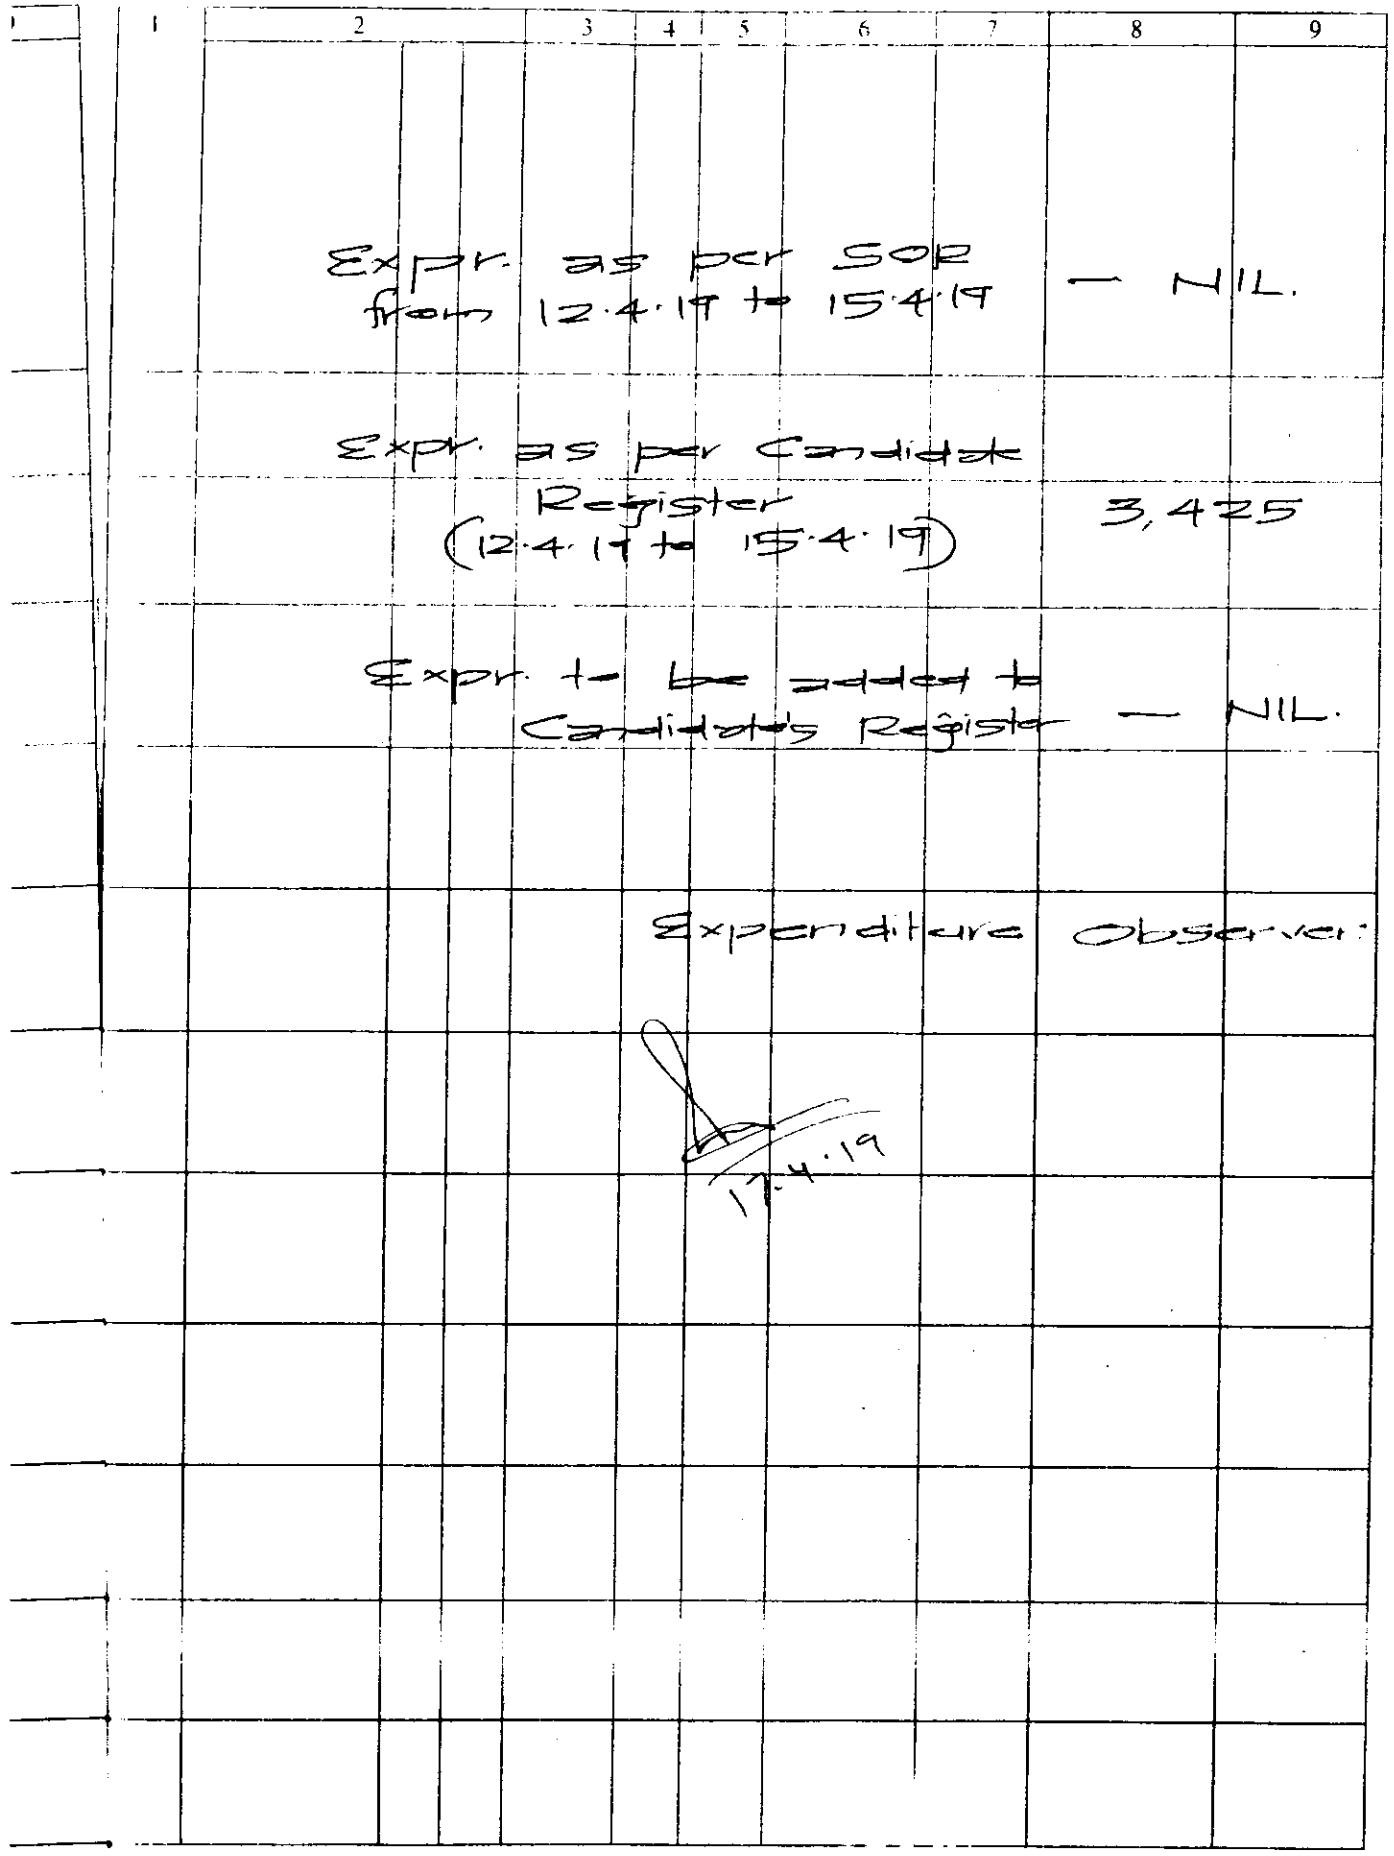 1 2 3 4 5 6 7 8 9
Expr. as per SOR
from 12.4.19 to 15.4.19 — NIL.
Expr. as per Candidate
Register 3,425
(12.4.19 to 15.4.19)
Expr. to be added to
Candidate's Register — NIL.
Expenditure Observer:
17.4.19